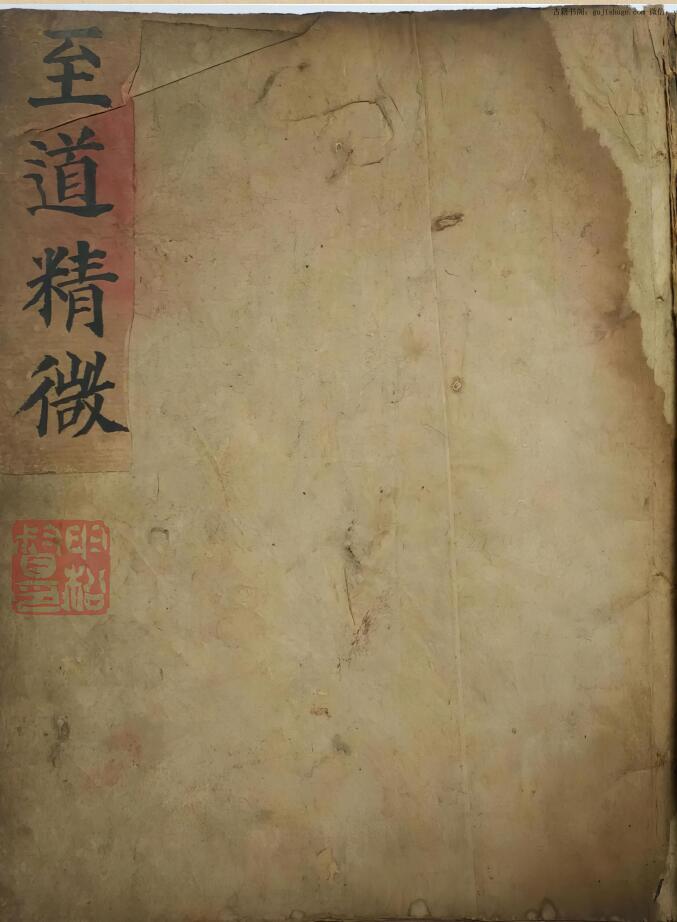 古籍书阁：gujishuge.com 微信：
至道精微
明松